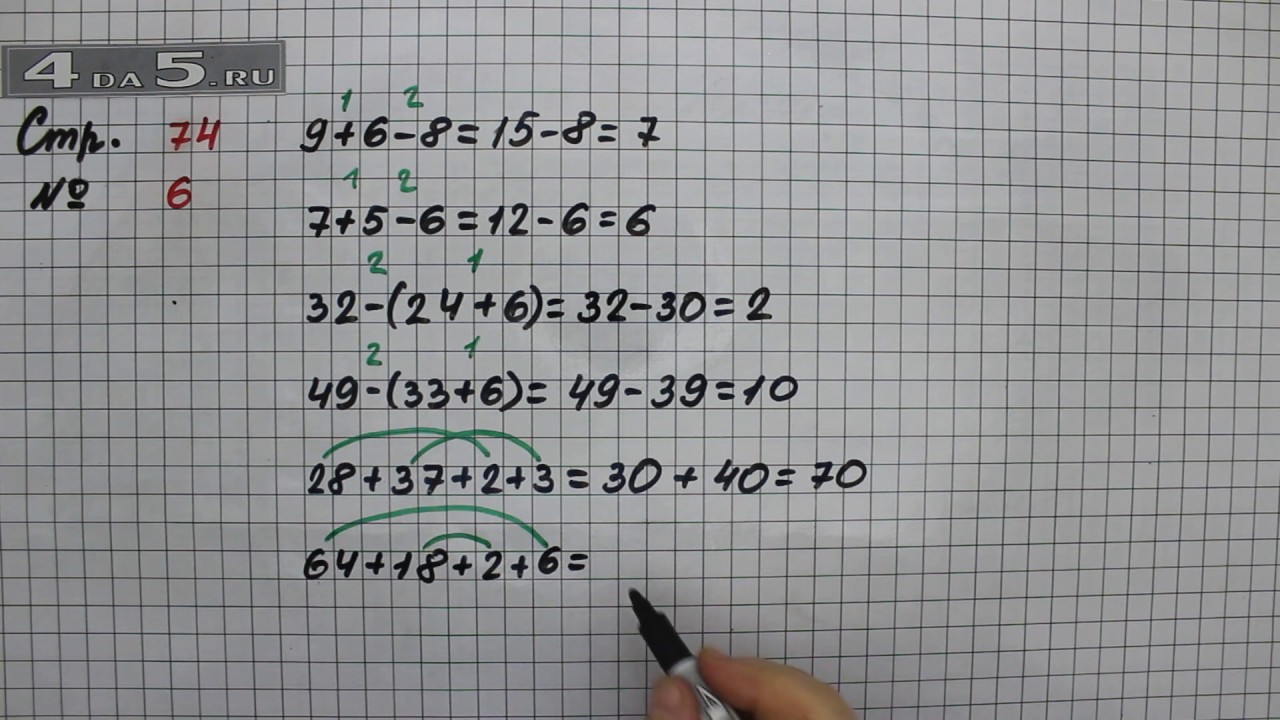 4 DA 5.RU
Стр. 74
№ 6
1 2
9+6-8=15-8=7
1 2
7+5-6=12-6=6
2 1
32-(24+6)=32-30=2
2 1
49-(33+6)=49-39=10
28+37+2+3=30+40=70
64+18+2+6=